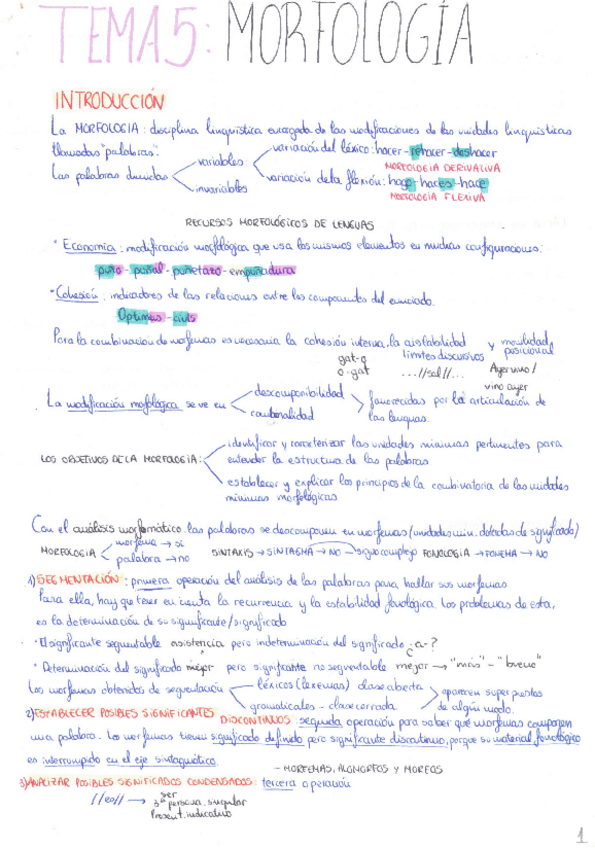 TEMA 5: MORFOLOGÍA
INTRODUCCIÓN
La MORFOLOGIA: disciplina lingüística encargada de las modificaciones de las unidades lingüísticas
llamadas "palabras".
variación del léxico: hacer - rehacer - deshacer
variables
MORFOLOGIA DERIVATIVA
Las palabras divididas
variación de la flexión: hago - haces - hace
invariables
MORFOLOGIA FLEXIVA
RECURSOS MORFOLÓGICOS DE LENGUAS
* Economía: modificación morfológica que usa los mismos elementos en muchas configuraciones:
puño - puñal - puñetazo - empuñadura
* Cohesión: indicadores de las relaciones entre los componentes del enunciado.
Optimus - civis
Para la combinación de morfemas es necesaria la cohesión interna, la aislabilidad y movilidad posicional
gat-o límites discursivos
o-gat ...//sal//... Ayer vino/
vino ayer
descomponibilidad
La modificación morfológica se ve en favorecidas por la articulación de
combinalidad las lenguas.
identificar y caracterizar las unidades mínimas pertinentes para
LOS OBJETIVOS DE LA MORFOLOGIA: entender la estructura de las palabras
establecer y explicar los principios de la combinatoria de las unidades
mínimas morfológicas
Con el análisis morfemático las palabras se descomponen en morfemas (unidades min. dotadas de significado)
morfema → si
MORFOLOGIA SINTAXIS → SINTAGMA → NO → signo complejo FONOLOGIA → FONEMA → NO
palabra → no
1) SEGMENTACIÓN: primera operación del análisis de las palabras para hallar sus morfemas.
Para ella, hay que tener en cuenta la recurrencia y la estabilidad fonológica. Los problemas de esta,
es la determinación de su significante/significado
* El significante segmentable asistencia pero indeterminación del significado ¿a-?
* Determinación del significado mejor pero significante no segmentable mejor → "más" - "bueno"
léxicos (lexemas) clase abierta
Los morfemas obtenidos de segmentación aparecen superpuestos
gramaticales - clase cerrada de algún modo.
2) ESTABLECER POSIBLES SIGNIFICANTES DISCONTINUOS: segunda operación para saber qué morfemas componen
una palabra. Los morfemas tienen significado definido pero significante discontinuo, porque su material fonológico
es interrumpido en el eje sintagmático.
- MORFEMAS, ALOMORFOS Y MORFOS
3) ANALIZAR POSIBLES SIGNIFICADOS CONDENSADOS: tercera operación
ser
//es// → 3ª persona singular
Present. indicativo
1